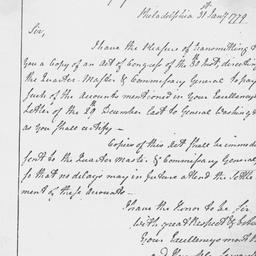 Philadelphia 31st Jany 1779
Sir,
I have the Pleasure of transmitting t
you a Copy of an Act of Congress of the 30 Inst, directin
the Quarter-Master & Commissary General to pay
such of the Accounts mentioned in your Excellencys
Letter of the 29 December last to General Washingt
as you shall certify —
Copies of this Act shall be immed
sent to the Quarter Master & Commissary General
so that no delays may in future attend the settle
ment of these Accounts —
I have the Honor to be Sir
With great Respect &
Your Excellencys most